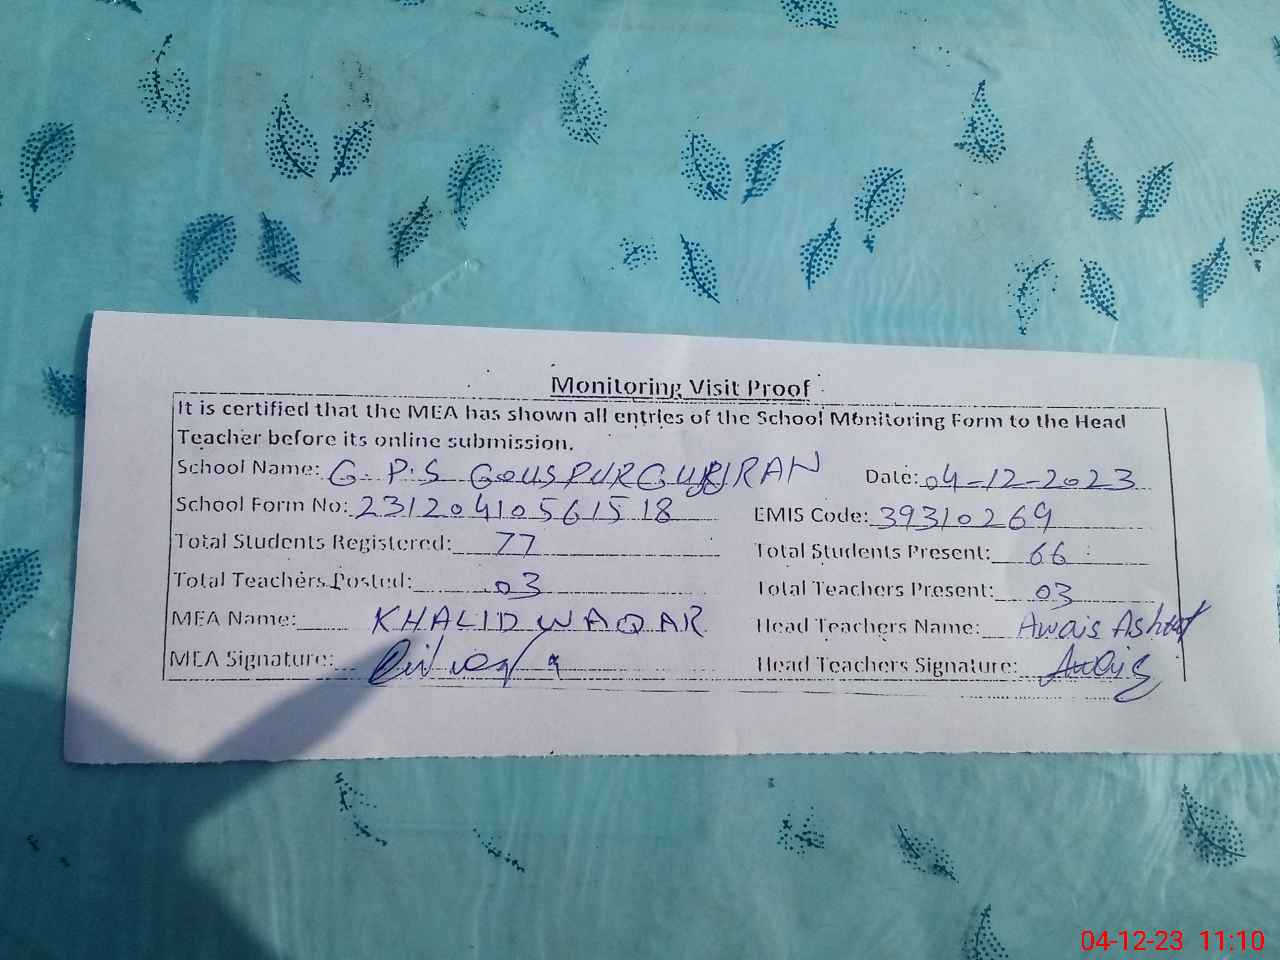 Monitoring Visit Proof
It is certified that the MEA has shown all entries of the School Monitoring Form to the Head
Teacher before its online submission.
School Name: G.P.S GOUSPUR GUJJRAN Date: 04-12-2023
School Form No: 23120410561518 EMIS Code: 39310269
Total Students Registered: 77 Total Students Present: 66
Total Teachers Posted: 03 Total Teachers Present: 03
MEA Name: KHALID WAQAR Head Teachers Name: Awais Ashraf
MEA Signature: Head Teachers Signature: Awais
04-12-23 11:10